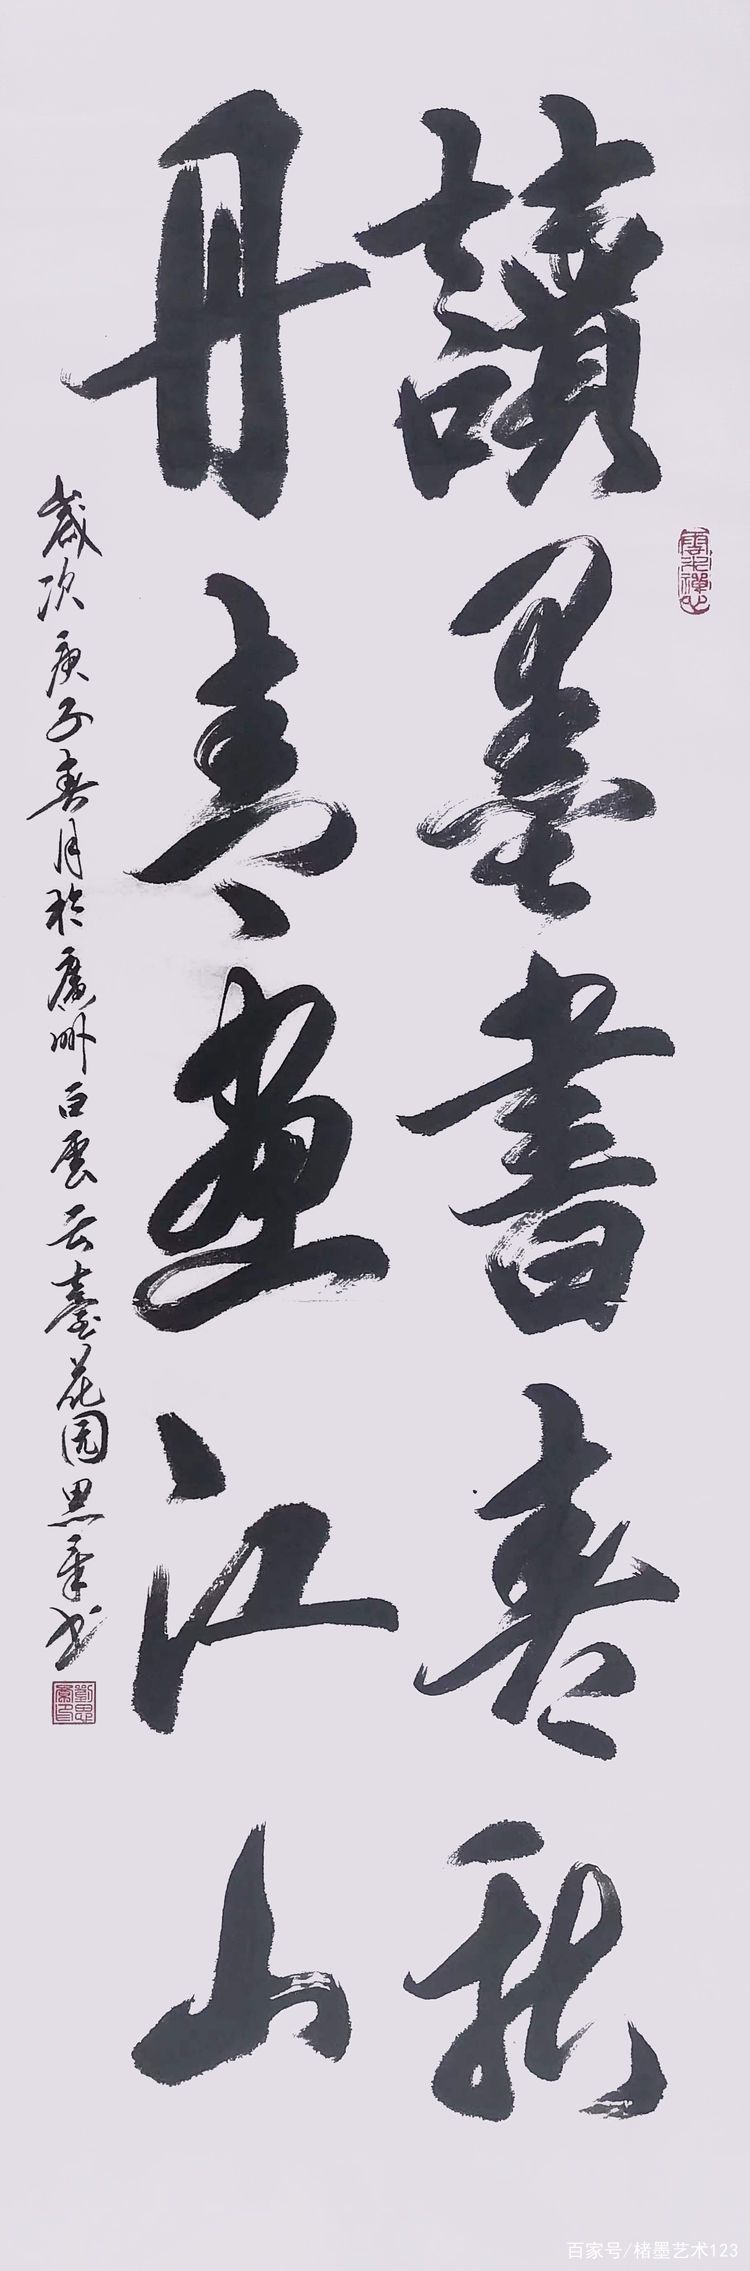 讀墨書春秋
丹青画江山
歲次庚子春月於廣州白雲云臺花园思章书
百家号/楮墨艺术123